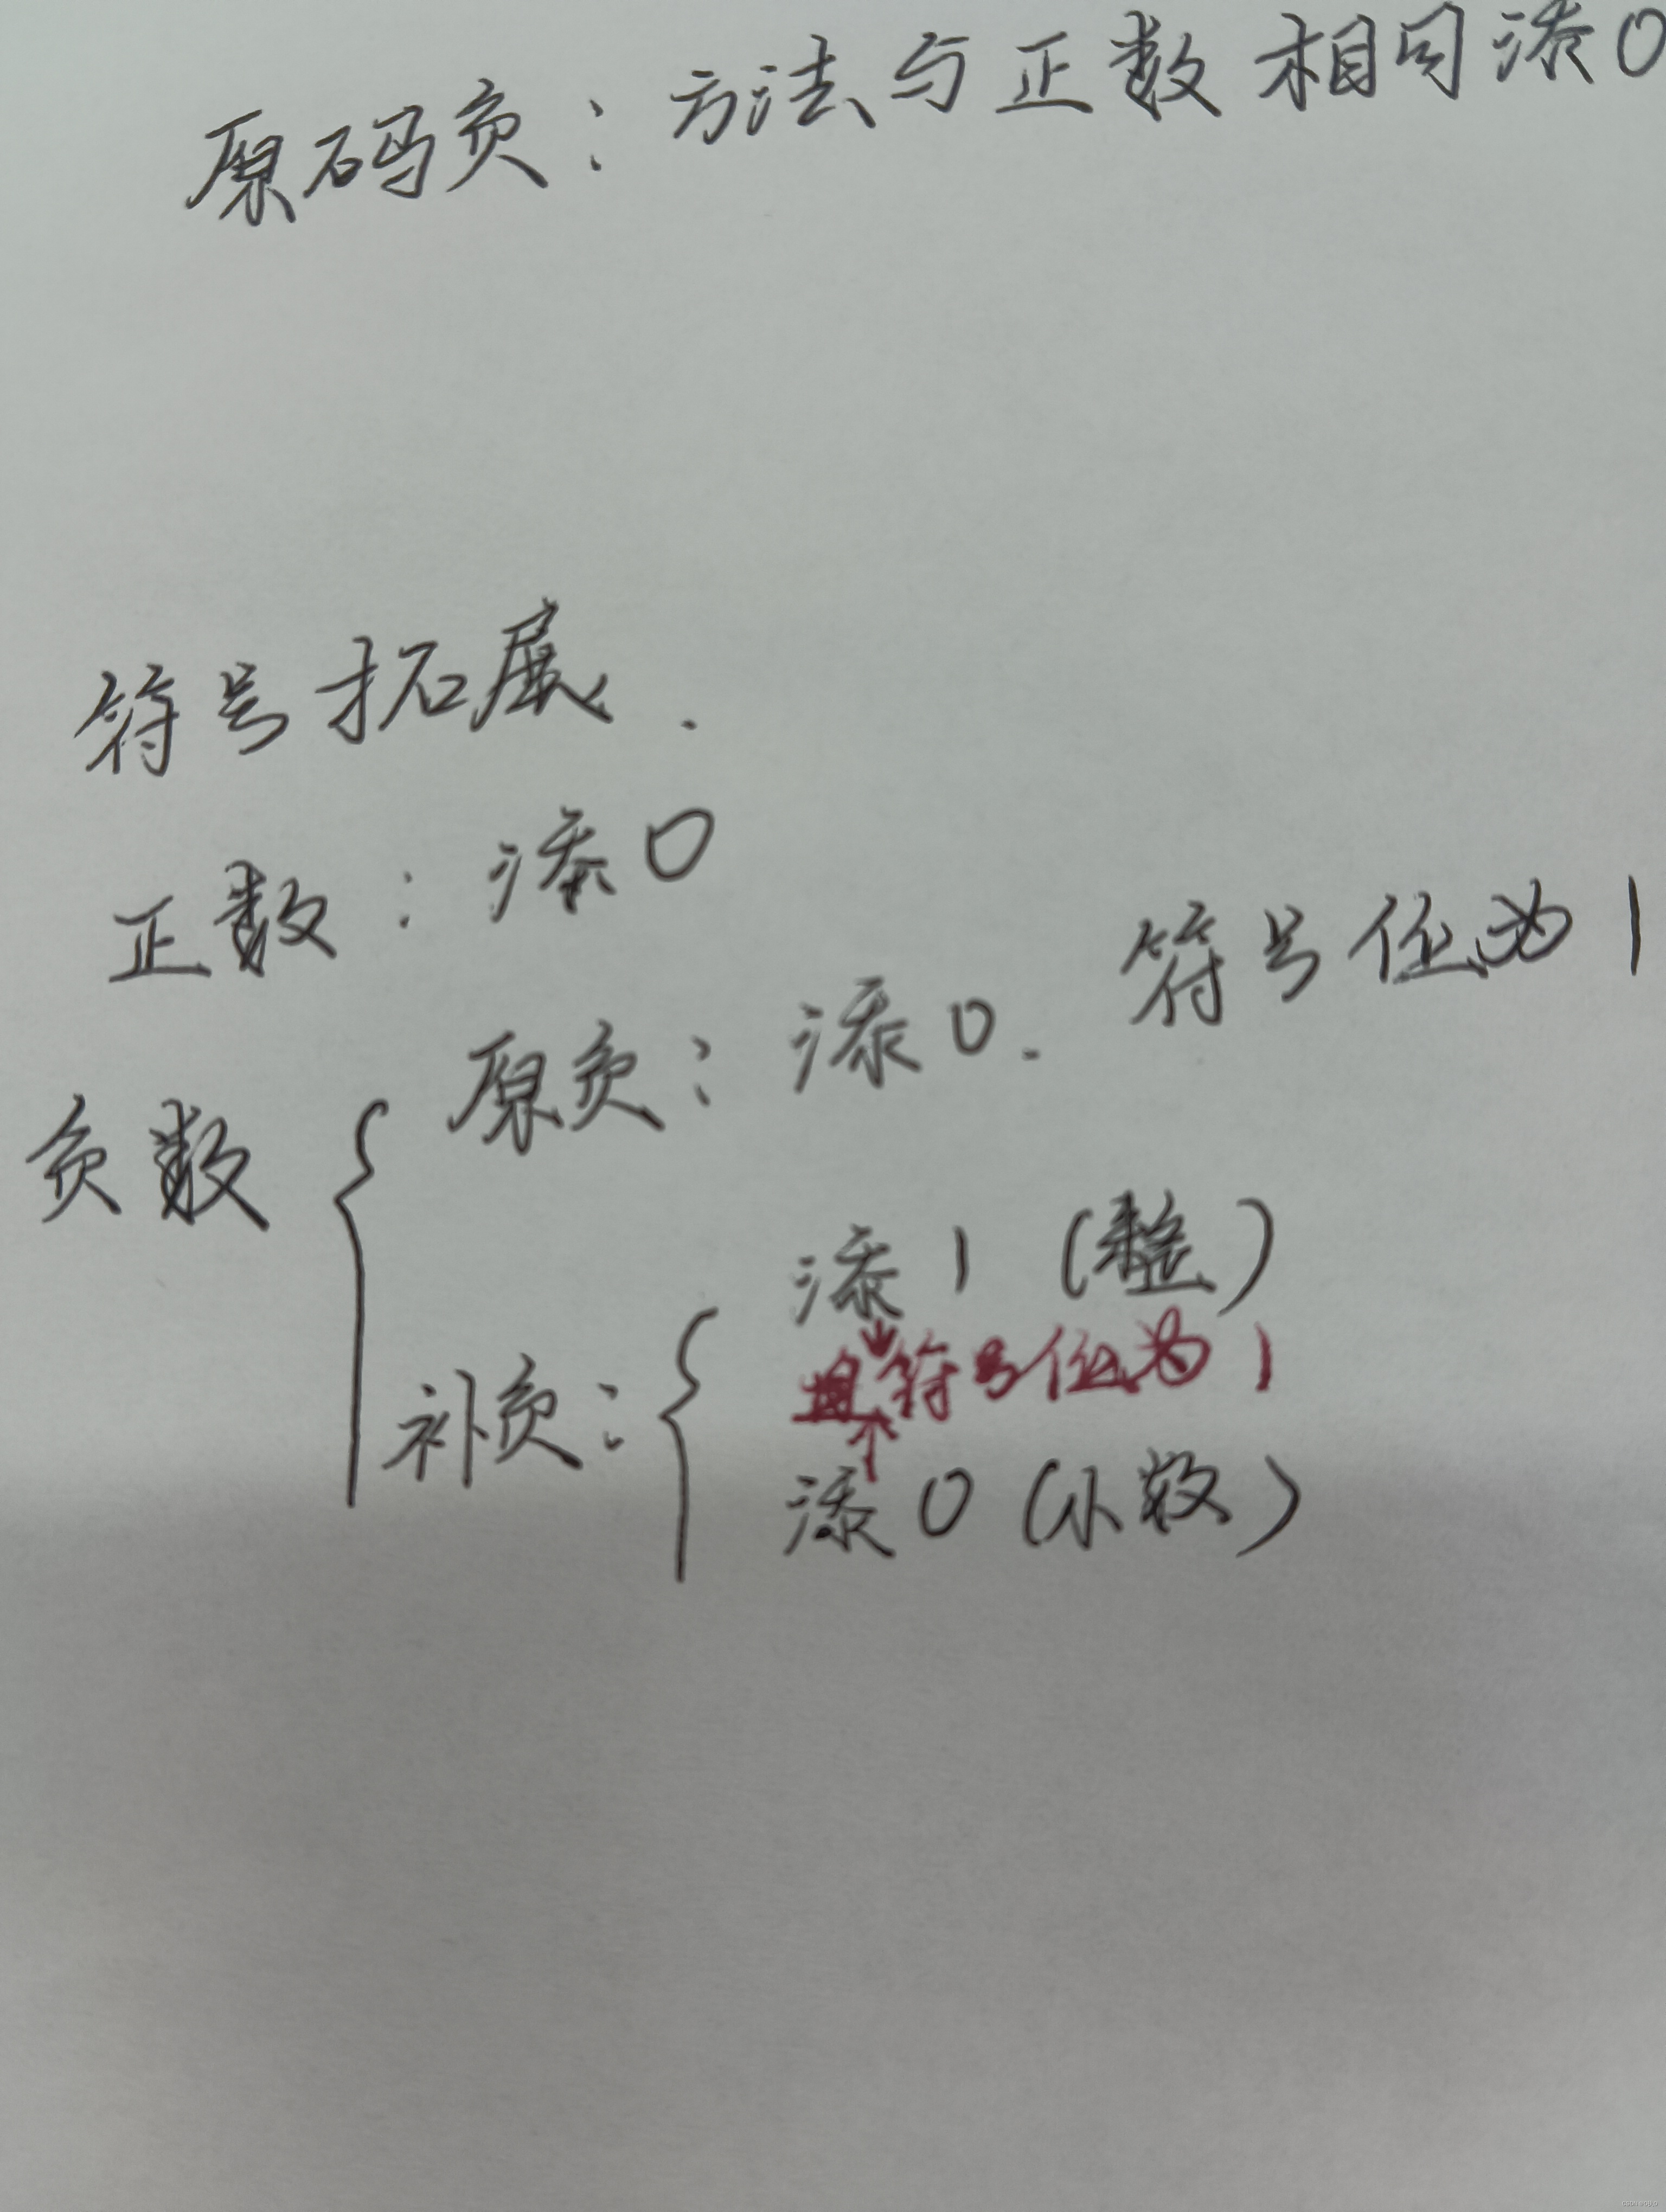 原码负：方法与正数相同添0
符号拓展.
正数：添0
负数 原负：添0. 符号位为1
补负：添1（整）
且符号位为1
添0（小数）